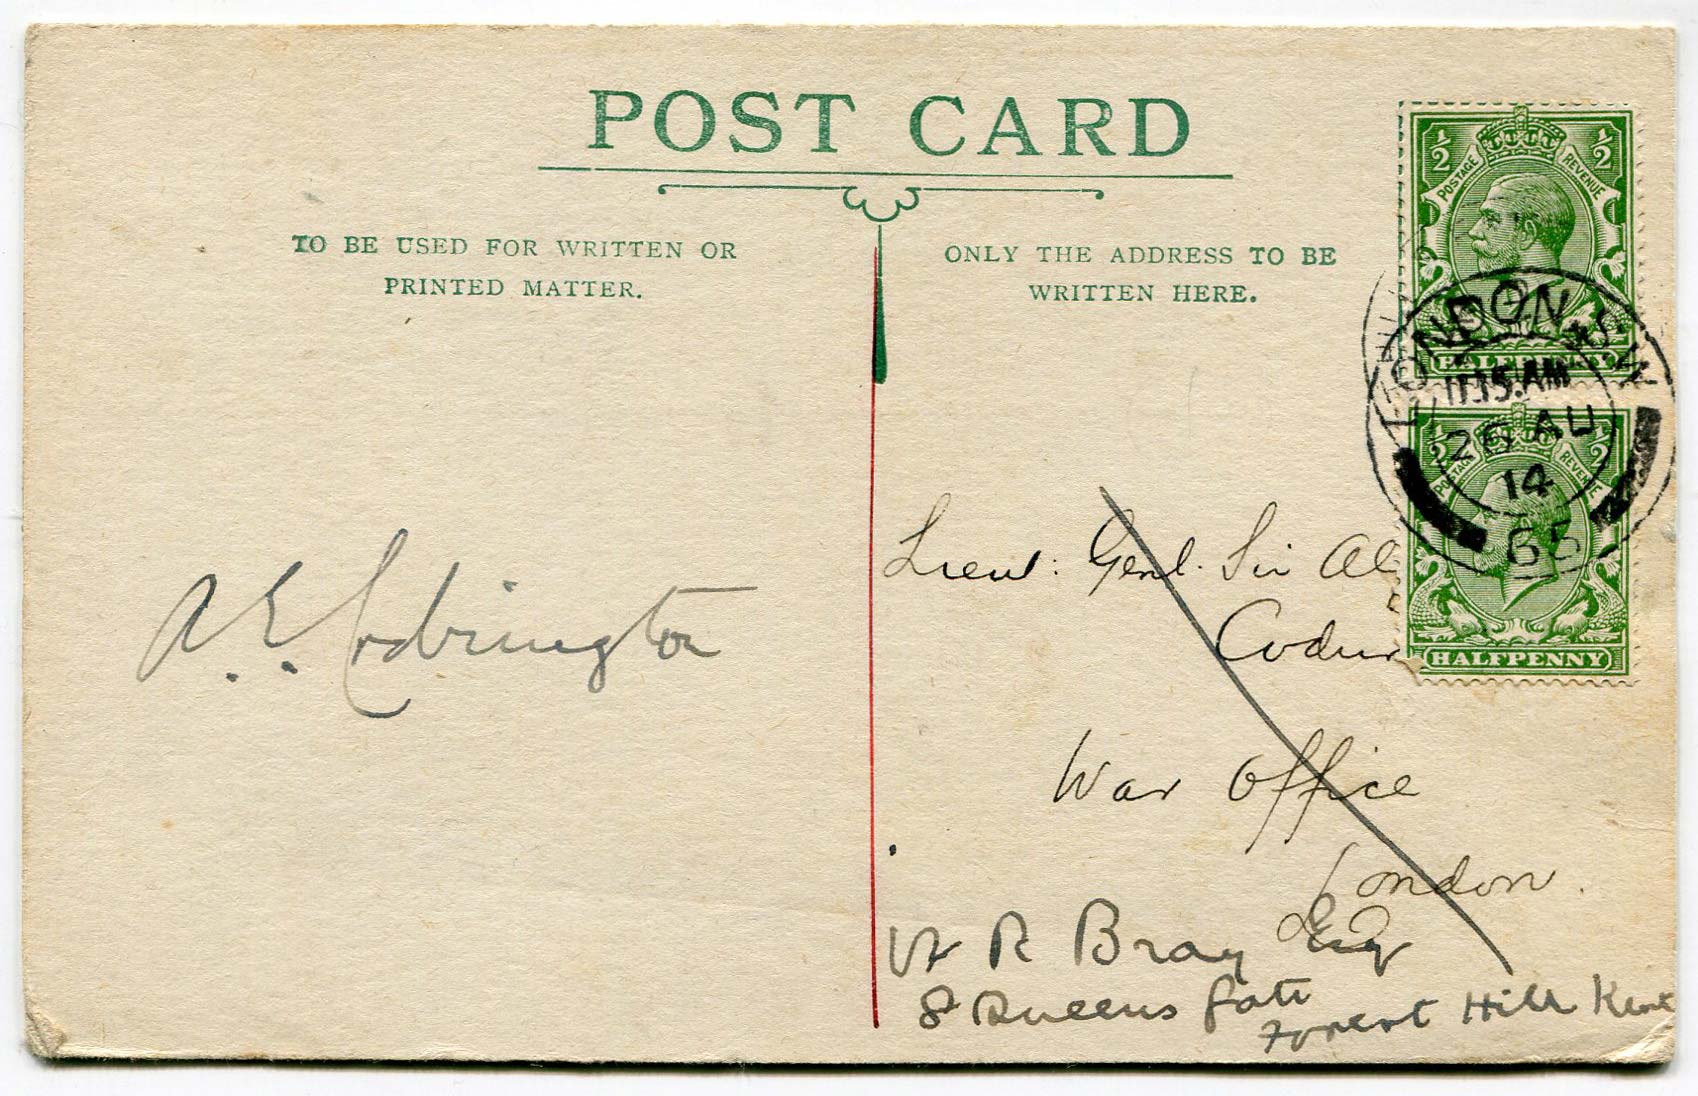 POST CARD
TO BE USED FOR WRITTEN OR
PRINTED MATTER.
ONLY THE ADDRESS TO BE
WRITTEN HERE.
½ ½
POSTAGE REVENUE
HALFPENNY
LONDON, S.W.
11.15.AM
26 AU
14
65
½ ½
POSTAGE REVENUE
HALFPENNY
A. E. Codrington
Lieut: Genl. Sir Al
Codr
War Office
London.
W R Bray Esq
8 Queens Gate
Forest Hill Kent